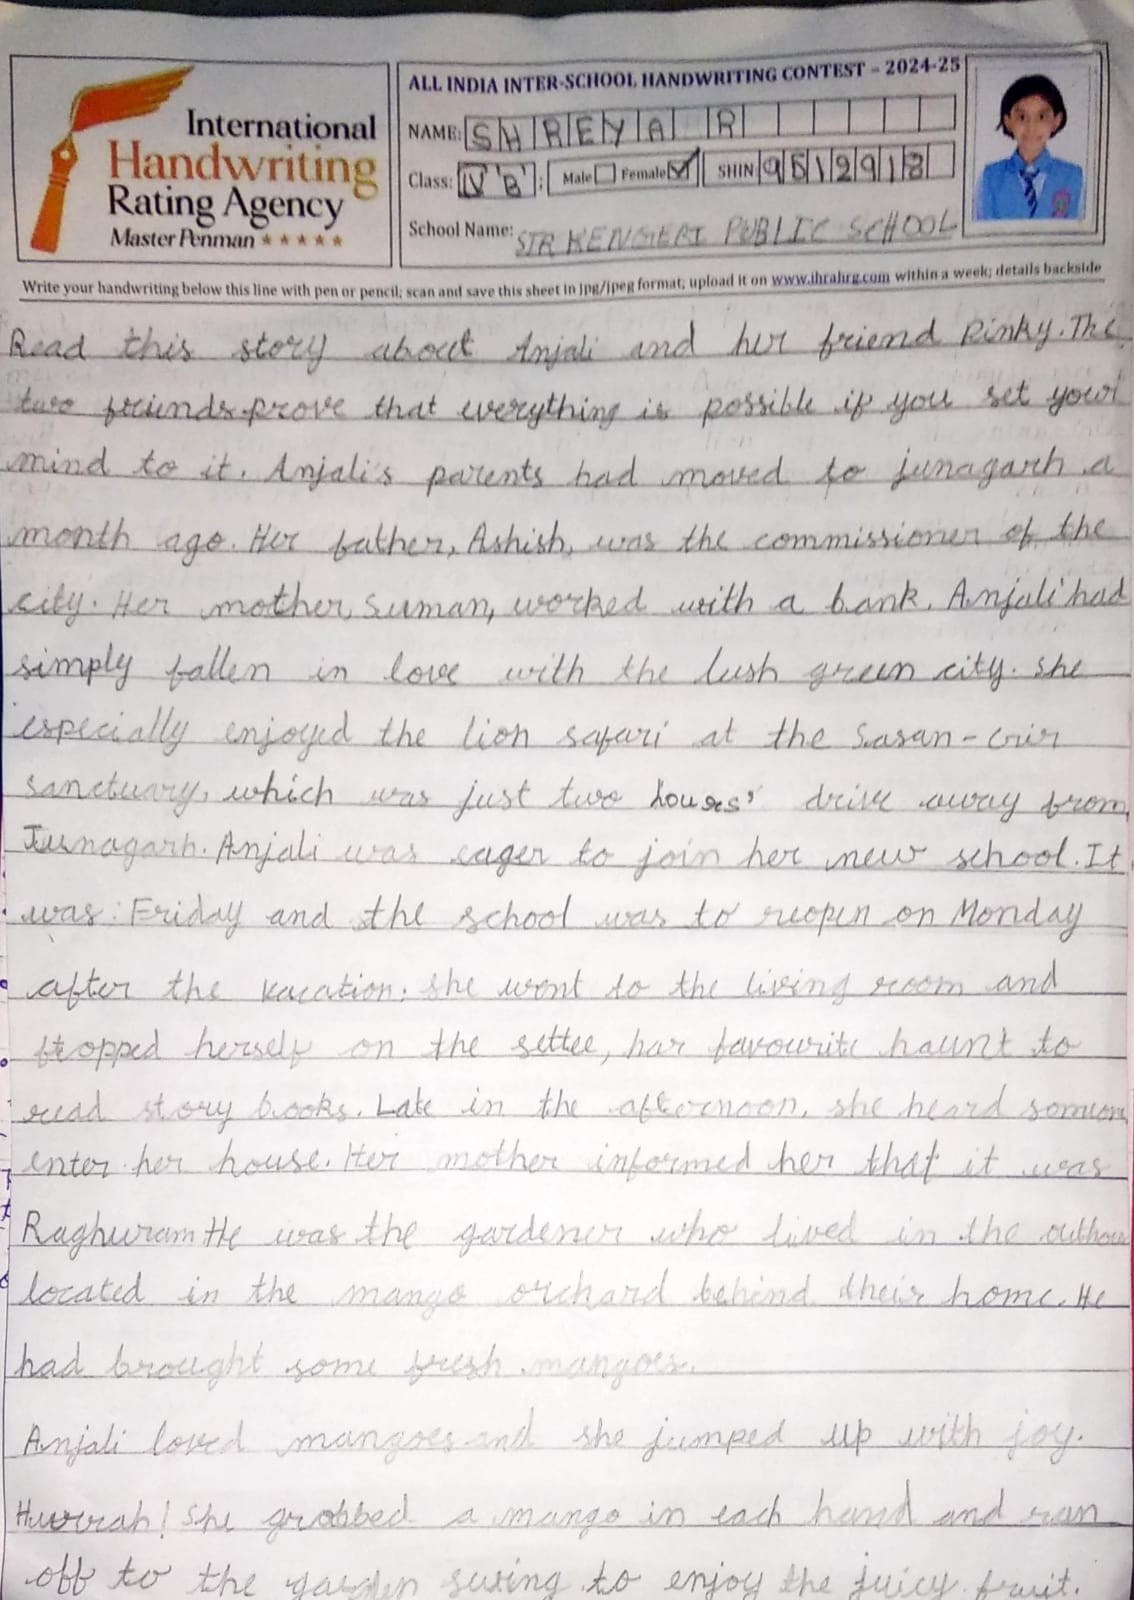 International
Handwriting
Rating Agency
Master Penman ★★★★★
ALL INDIA INTER-SCHOOL HANDWRITING CONTEST – 2024-25
NAME: SHREYA R
Class: IV 'B' : Male Female ✓ SHIN 9512913
School Name: PUBLIC SCHOOL
Write your handwriting below this line with pen or pencil; scan and save this sheet in jpg/jpeg format; upload it on www.ihrahrg.com within a week; details backside
Read this story about Anjali and her friend Pinky. The
two friends prove that everything is possible if you set your
mind to it. Anjali's parents had moved to junagarh a
month ago. Her father, Ashish, was the commissioner of the
city. Her mother, Suman, worked with a bank. Anjali had
simply fallen in love with the lush green city. She
especially enjoyed the lion safari at the Sasan-Gir
sanctuary, which was just two hours' drive away from
Junagarh. Anjali was eager to join her new school. It
was Friday and the school was to reopen on Monday
after the vacation. She went to the living room and
flopped herself on the settee, her favourite haunt to
read story books. Late in the afternoon, she heard someon
enter her house. Her mother informed her that it was
Raghuram He was the gardener who lived in the outhou
located in the mango orchard behind their home. He
had brought some fresh mangoes.
Anjali loved mangoes and she jumped up with joy.
Hurrah! She grabbed a mango in each hand and ran
off to the garden swing to enjoy the juicy fruit.